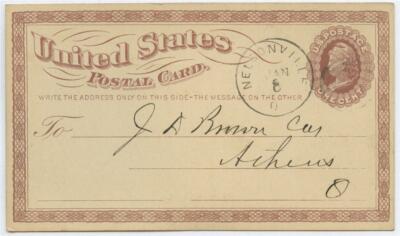 United States
POSTAL CARD.
WRITE THE ADDRESS ONLY ON THIS SIDE-THE MESSAGE ON THE OTHER
NELSONVILLE
JAN
8
O
U.S. POSTAGE
ONE CENT
To J D Brown Cas
Athens
O